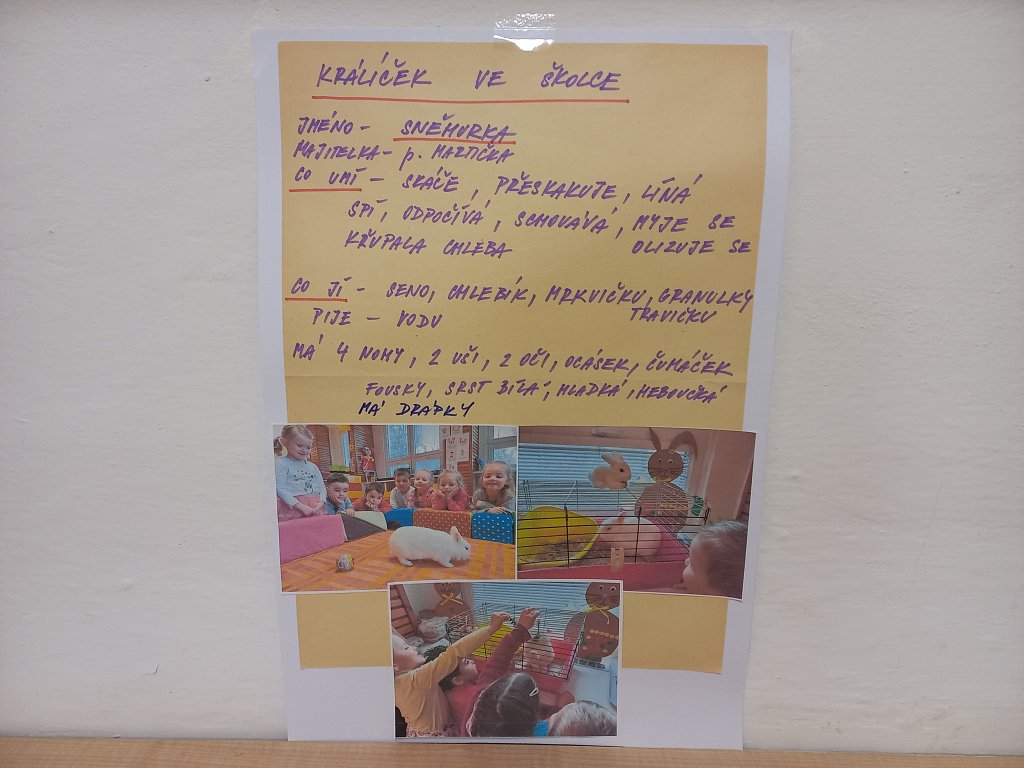 KRÁLÍČEK VE ŠKOLCE
JMÉNO - SNĚHURKA
MAJITELKA - p. MARTIČKA
CO UMÍ - SKÁČE, PŘESKAKUJE, LÍNÁ
SPÍ, ODPOČÍVÁ, SCHOVÁVÁ, MYJE SE
KŘUPALA CHLEBA OLIZUJE SE
CO JÍ - SENO, CHLEBÍK, MRKVIČKU, GRANULKY
TRAVIČKU
PIJE - VODU
MÁ 4 NOHY, 2 UŠI, 2 OČI, OCÁSEK, ČUMÁČEK
FOUSKY, SRST BÍLÁ, HLADKÁ, HEBOUČKÁ
MÁ DRÁPKY